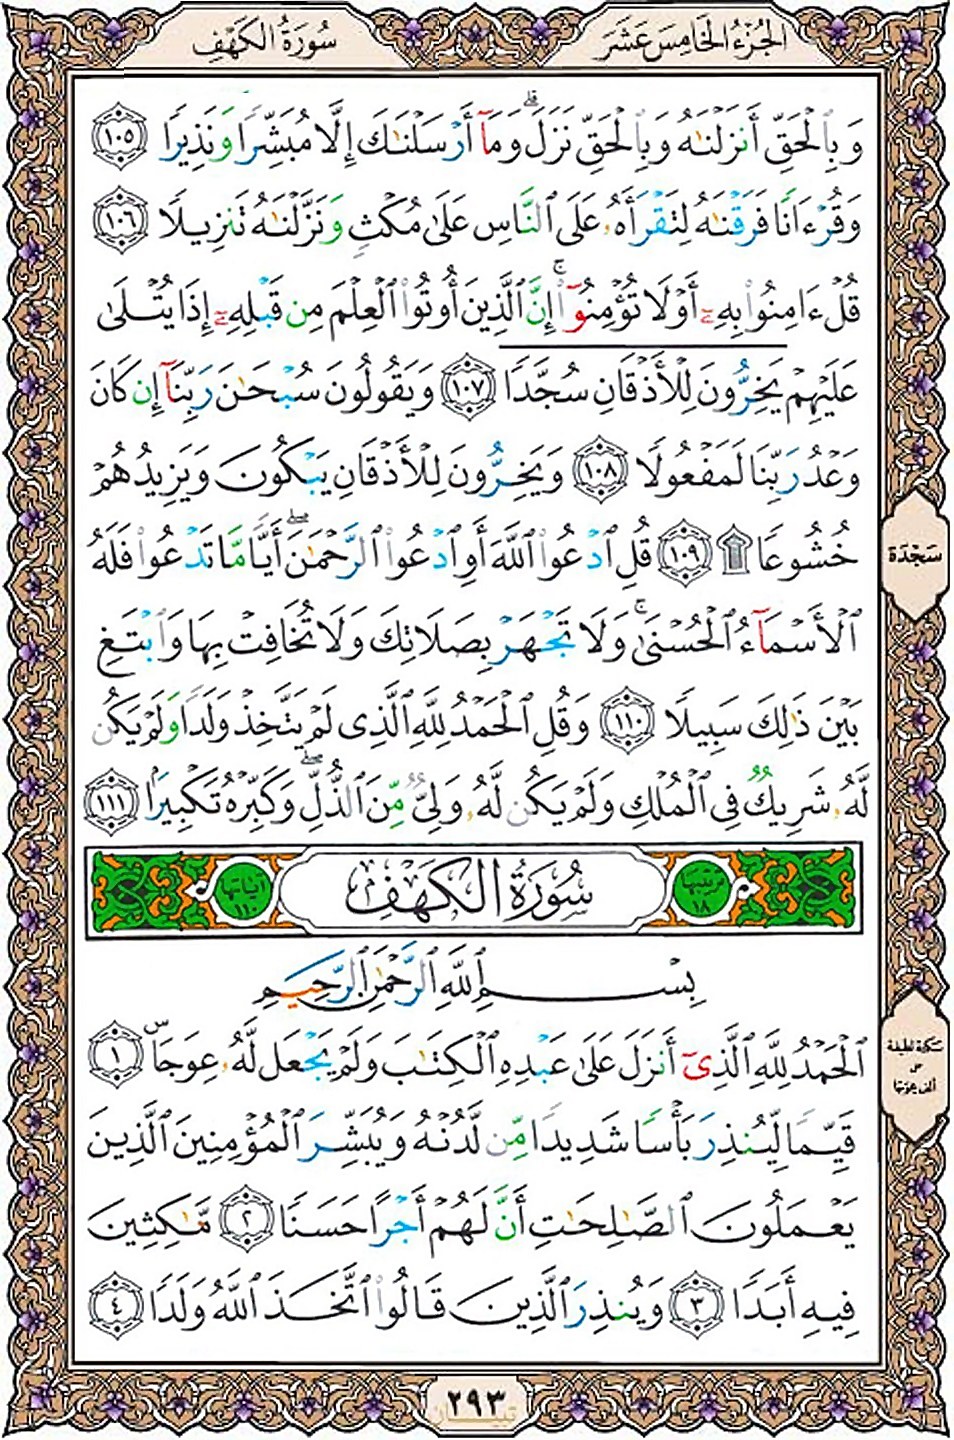 سُورَةُ الكَهْفِ
الجُزْءُ الخَامِسَ عَشَرَ
وَبِٱلْحَقِّ أَنزَلْنَـٰهُ وَبِٱلْحَقِّ نَزَلَ ۗ وَمَآ أَرْسَلْنَـٰكَ إِلَّا مُبَشِّرًا وَنَذِيرًا ١٠٥
وَقُرْءَانًا فَرَقْنَـٰهُ لِتَقْرَأَهُۥ عَلَى ٱلنَّاسِ عَلَىٰ مُكْثٍ وَنَزَّلْنَـٰهُ تَنزِيلًا ١٠٦
قُلْ ءَامِنُوا۟ بِهِۦٓ أَوْ لَا تُؤْمِنُوٓا۟ ۚ إِنَّ ٱلَّذِينَ أُوتُوا۟ ٱلْعِلْمَ مِن قَبْلِهِۦٓ إِذَا يُتْلَىٰ
عَلَيْهِمْ يَخِرُّونَ لِلْأَذْقَانِ سُجَّدًا ١٠٧ وَيَقُولُونَ سُبْحَـٰنَ رَبِّنَآ إِن كَانَ
وَعْدُ رَبِّنَا لَمَفْعُولًا ١٠٨ وَيَخِرُّونَ لِلْأَذْقَانِ يَبْكُونَ وَيَزِيدُهُمْ
خُشُوعًا ۩ ١٠٩ قُلِ ٱدْعُوا۟ ٱللَّهَ أَوِ ٱدْعُوا۟ ٱلرَّحْمَـٰنَ ۖ أَيًّا مَّا تَدْعُوا۟ فَلَهُ
سَجْدَة
ٱلْأَسْمَآءُ ٱلْحُسْنَىٰ ۚ وَلَا تَجْهَرْ بِصَلَاتِكَ وَلَا تُخَافِتْ بِهَا وَٱبْتَغِ
بَيْنَ ذَٰلِكَ سَبِيلًا ١١٠ وَقُلِ ٱلْحَمْدُ لِلَّهِ ٱلَّذِى لَمْ يَتَّخِذْ وَلَدًا وَلَمْ يَكُن
لَّهُۥ شَرِيكٌ فِى ٱلْمُلْكِ وَلَمْ يَكُن لَّهُۥ وَلِىٌّ مِّنَ ٱلذُّلِّ ۖ وَكَبِّرْهُ تَكْبِيرًۢا ١١١
ترتيبها ١٨
سُورَةُ الكَهْفِ
آياتها ١١٠
بِسْمِ ٱللَّهِ ٱلرَّحْمَـٰنِ ٱلرَّحِيمِ
ٱلْحَمْدُ لِلَّهِ ٱلَّذِىٓ أَنزَلَ عَلَىٰ عَبْدِهِ ٱلْكِتَـٰبَ وَلَمْ يَجْعَل لَّهُۥ عِوَجَاۜ ١
سكتة لطيفة
قَيِّمًا لِّيُنذِرَ بَأْسًا شَدِيدًا مِّن لَّدُنْهُ وَيُبَشِّرَ ٱلْمُؤْمِنِينَ ٱلَّذِينَ
يَعْمَلُونَ ٱلصَّـٰلِحَـٰتِ أَنَّ لَهُمْ أَجْرًا حَسَنًا ٢ مَّـٰكِثِينَ
فِيهِ أَبَدًا ٣ وَيُنذِرَ ٱلَّذِينَ قَالُوا۟ ٱتَّخَذَ ٱللَّهُ وَلَدًا ٤
٢٩٣
تبيان